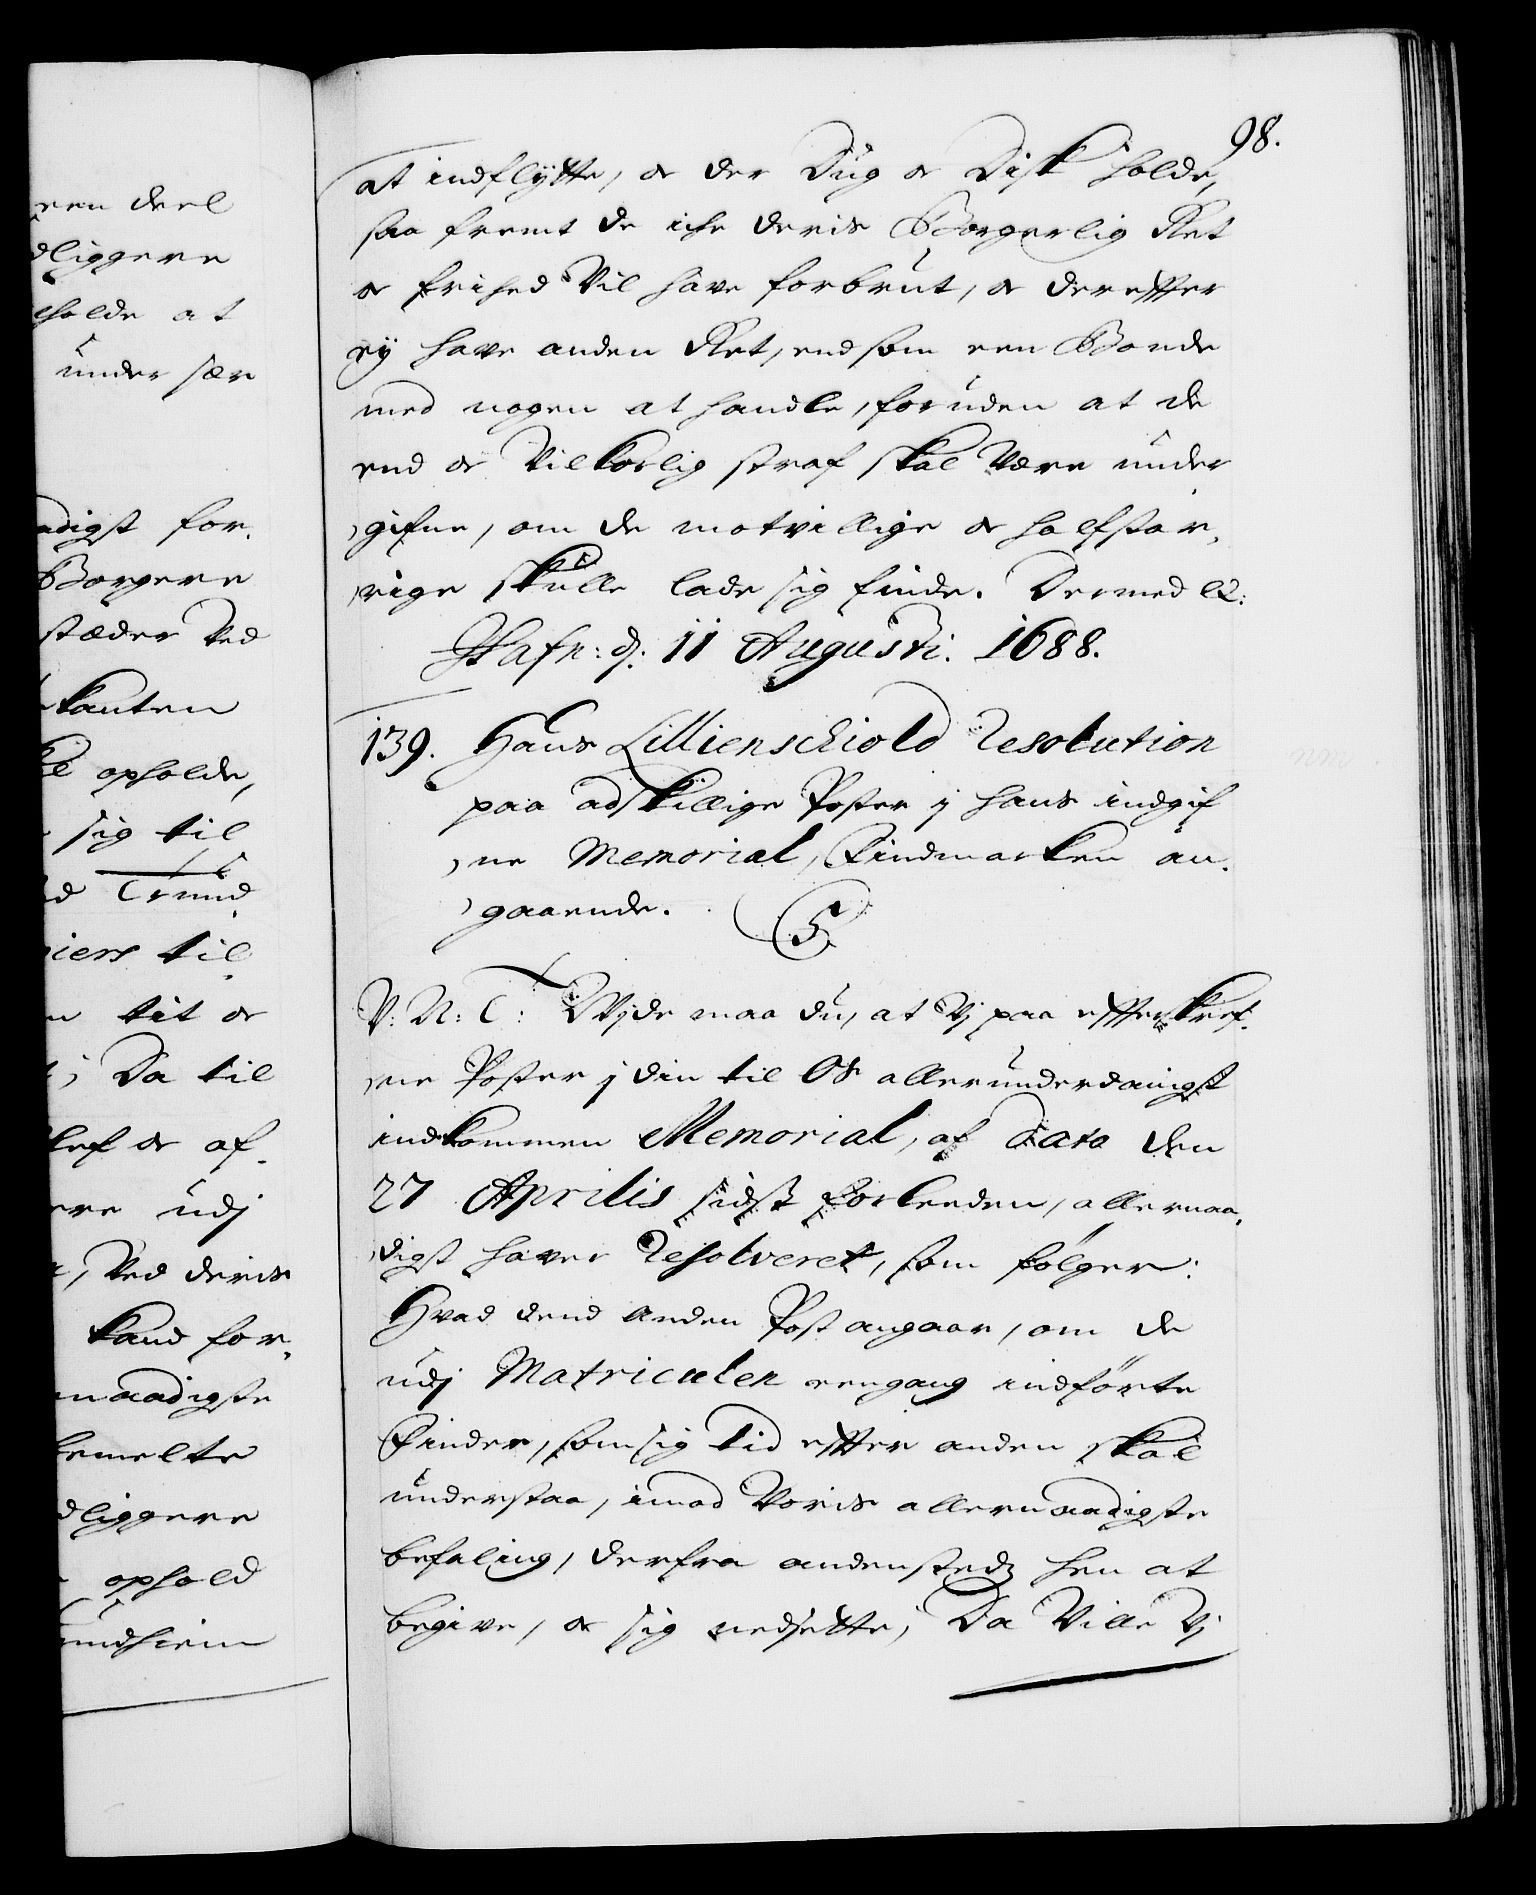 98.
at indflÿtte, og der Dug og Disk holde,
saa fremt de iche deris Borgerlig Ret
og frihed Vil have forbrut, og derefter
eÿ have anden Ret, end som een Bonde
med nogen at handle, foruden at de
end og Vilkorlig straf skal Være under
gifne, om de motvillige og halsstar,
rige skulle lade sig finde. Dermed &:
Hafn: d: 11 Augusti. 1688.
139. Hans Lillienschiold Resolution
paa adskillige Poster j hans indgif
ne Memorial, Findmarken an,
gaaende. S
V: N: C: Wide maa du, at Vj paa efterskref,
ne Poster j din til Os allerunderdanigst
indkommen Memorial, af Dato den
27 Aprilis sidst forleeden, allernaa,
digst haver Resolveret, som følger:
Hvad dend anden Post angaar, om de
udj Matriculen eengang indførte
Finder, som sig tid efter anden skal
understaa, imod Voris allernaadigste
befaling, derfra andenstedz hen at
begive, og sig nedsette, Da Ville Vj
een deel
dliggere
holde at
under sær
adigst for,
Borgere
stæder Ved
kanten
opholde,
sig til
Trund,
til,
tit og
Da til
og af,
ere udj
Ved deris
kand for,
naadigste
bemelte
dliggere
ophold
undhiem